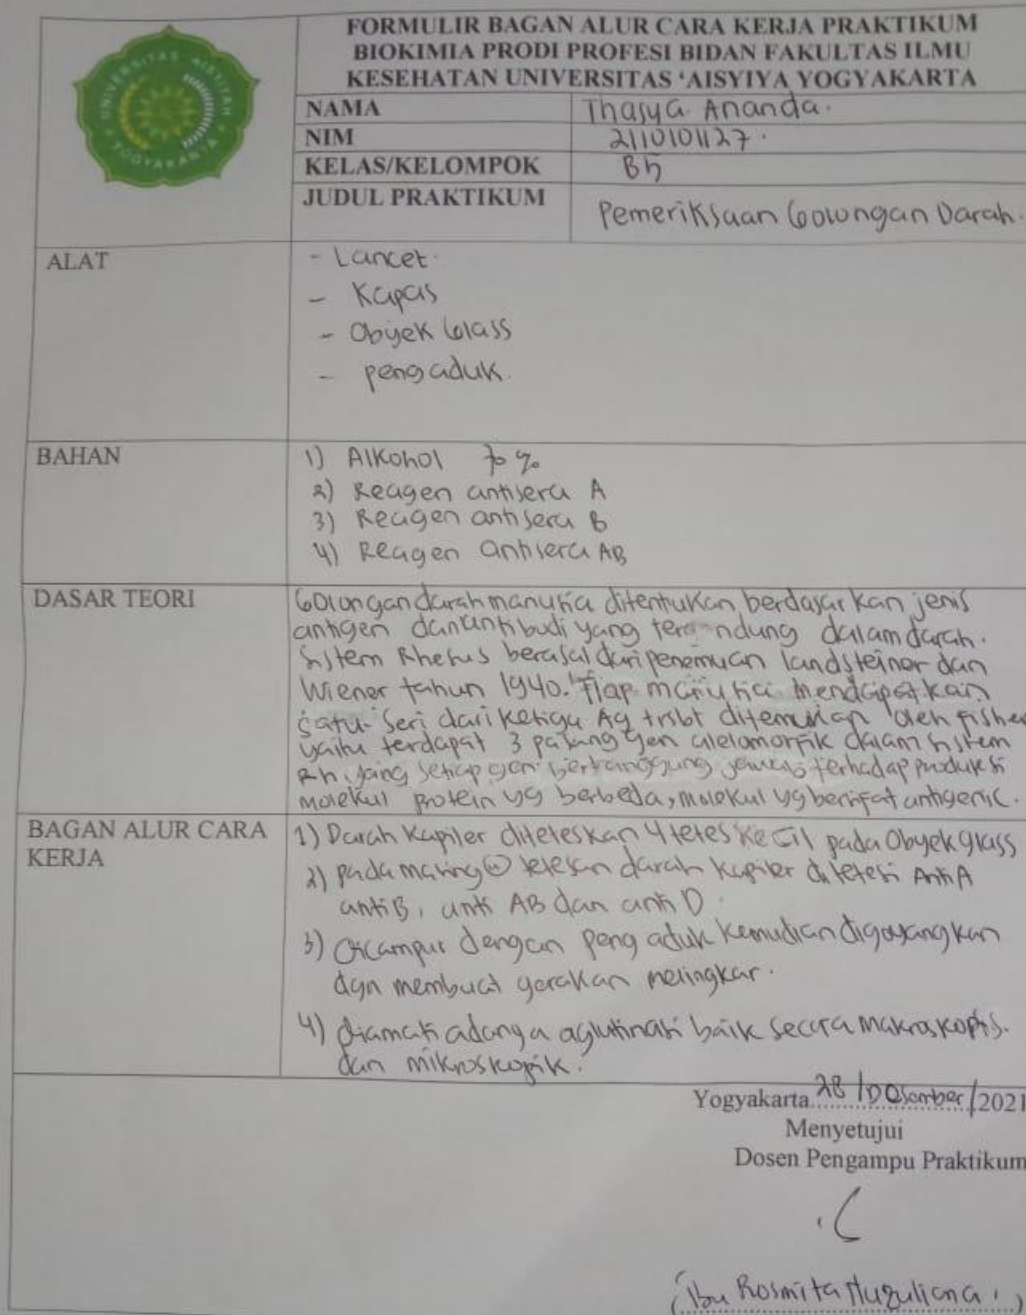 FORMULIR BAGAN ALUR CARA KERJA PRAKTIKUM
BIOKIMIA PRODI PROFESI BIDAN FAKULTAS ILMU
KESEHATAN UNIVERSITAS ‘AISYIYA YOGYAKARTA
UNIVERSITAS 'AISYIYAH
YOGYAKARTA
NAMA Thasya Ananda.
NIM 2110101127.
KELAS/KELOMPOK B5
JUDUL PRAKTIKUM Pemeriksaan Golongan Darah.
ALAT
- Lancet.
- Kapas
- Obyek Glass
- pengaduk.
BAHAN
1) Alkohol 70 %
2) Reagen antisera A
3) Reagen antisera B
4) Reagen antisera AB
DASAR TEORI
Golongan darah manusia ditentukan berdasarkan jenis
antigen dan antibodi yang terkandung dalam darah.
Sistem Rhesus berasal dari penemuan landsteiner dan
Wiener tahun 1940. Tiap manusia mendapatkan
satu seri dari ketiga Ag trsbt ditemukan oleh fisher
yaitu terdapat 3 pasang gen alelomorfik dalam sistem
Rh yang setiap gen bertanggung jawab terhadap produksi
molekul protein yg berbeda, molekul yg bersifat antigenic.
BAGAN ALUR CARA
KERJA
1) Darah Kapiler diteteskan 4 tetes kecil pada Obyek glass
2) pada masing② tetesan darah kapiler ditetesi Anti A
anti B, anti AB dan anti D.
3) Dicampur dengan pengaduk kemudian digoyangkan
dgn membuat gerakan melingkar.
4) diamati adanya aglutinasi baik secara makroskopis.
dan mikroskopik.
Yogyakarta 28/Desember/2021
Menyetujui
Dosen Pengampu Praktikum
(Ibu Rosmita